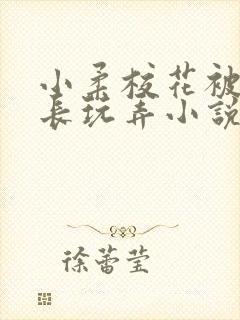 小柔校花被
长玩弄小説
徐蕾莹